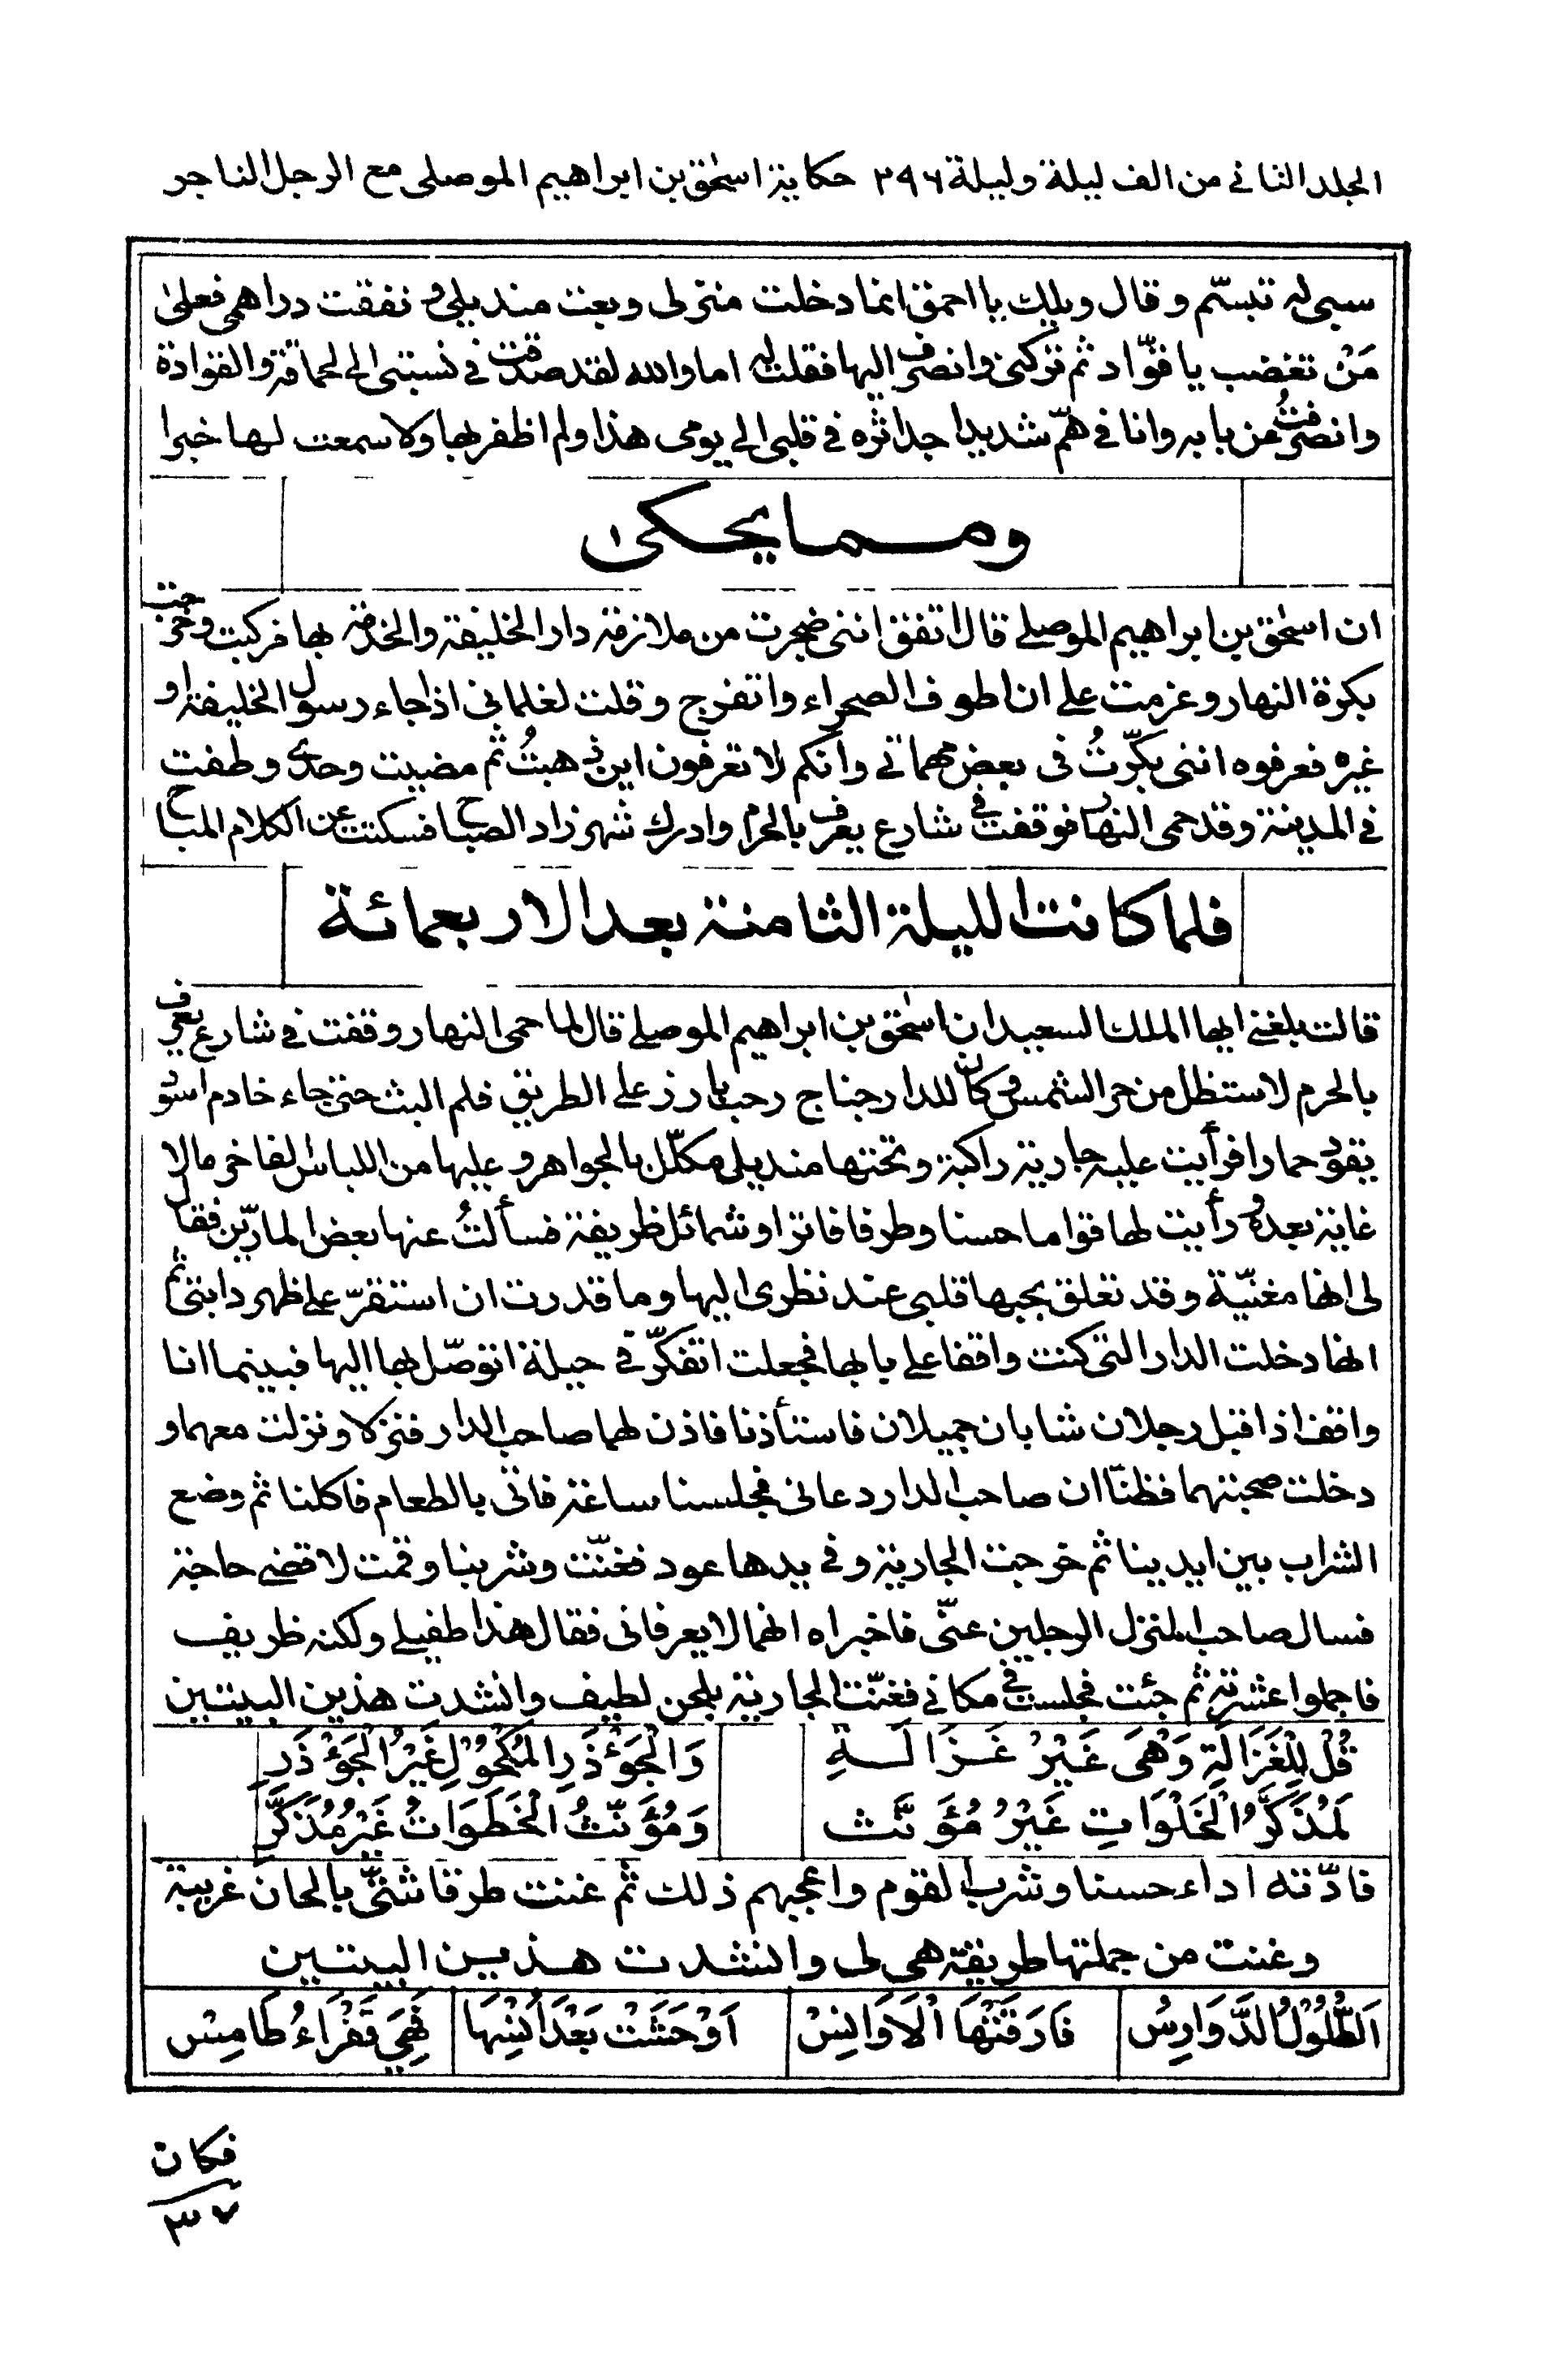 الجلد الثانى من الف ليلة وليلة ٣٩٦ حكاية اسحٰق بن ابراهيم الموصلى مع الرجل التاجر
سبيله تبسّم وقال ويلك يا احمق انما دخلت منزلى وبعت منديلى ونفقت دراهمى فعلىٰ
مَنْ تغضب يا قوّاد ثم تركنى وانصرف اليها فقلت له اما والله لقد صدقت فى نسبتى الى الحماقة والقوادة
وانصرفتُ من بابه وانا فى همّ شديد اجد اثره فى قلبى الى يومى هذا ولم اظفر بها ولا سمعت لها خبرا
ومما يحكىٰ
ان اسحٰق بن ابراهيم الموصلى قال اتفق اننى ضجرت من ملازمة دار الخليفة والخدمة بها فركبت وخرجت
بكرة النهار وعزمت على ان اطوف الصحراء واتفرج وقلت لغلمانى اذا جاء رسول الخليفة او
غيره فعرفوه اننى بكّرتُ فى بعض مهماتى وانكم لا تعرفون اين ذهبتُ ثم مضيت وحدى وطفت
فى المدينة وقد حمى النهار فوقفت فى شارع يعرف بالحرم وادرك شهرزاد الصباح فسكتت عن الكلام المباح
فلما كانت الليلة الثامنة بعد الاربعمائة
قالت بلغنى ايها الملك السعيد ان اسحٰق بن ابراهيم الموصلى قال لما حمى النهار وقفت فى شارع يعرف
بالحرم لاستظل من حر الشمس وكان للدار جناح رحب بارز على الطريق فلم البث حتى جاء خادم اسود
يقود حمارا فرأيت عليه جارية راكبة وتحتها منديل مكلّل بالجواهر وعليها من اللباس الفاخر ما لا
غاية بعده ورأيت لها قواما حسنا وطرفا فاترا وشمائل ظريفة فسألتُ عنها بعض المارّين فقال
لى انها مغنيّة وقد تعلق بحبها قلبى عند نظرى اليها وما قدرت ان استقرّ على ظهر دابتى ثم
انها دخلت الدار التى كنت واقفا على بابها فجعلت اتفكّر فى حيلة اتوصّل بها اليها فبينما انا
واقف اذ اقبل رجلان شابان جميلان فاستأذنا فاذن لهما صاحب الدار فنزلا ونزلت معهما و
دخلت صحبتهما فظنّا ان صاحب الدار دعانى فجلسنا ساعة فاتى بالطعام فاكلنا ثم وضع
الشراب بين ايدينا ثم خرجت الجارية وفى يدها عود فغنّت وشربنا وقمت لاقضى حاجة
فسال صاحب المنزل الرجلين عنّى فاخبراه انهما لا يعرفانى فقال هذا طفيلى ولكنه ظريف
فاجملوا عشرته ثم جئت فجلست فى مكانى فغنّت الجارية بلحن لطيف وانشدت هذين البيتين
قُلْ لِلْغَزَالَةِ وَهْىَ غَيْرُ غَزَالَةِ وَالْجَوْءْذَرِ الْمَكْحُوْلِ غَيْرُ الْجَوْءْذَرِ
لَمُذَكَّرُ الْخَلَوَاتِ غَيْرُ مُؤَنَّث وَمُؤَنَّثُ الْخَطَوَاتُ غَيْرُ مُذَكَّرِ
فادّته اداء حسنا وشرب القوم واعجبهم ذلك ثم غنت طرقا شتّى بالحان غريبة
وغنت من جملتها طريقة هى لى وانشدت هذين البيتين
اَلطُّلُوْلُ الدَّوَارِسُ فَارَقَتْهَا الْاَوَانِسْ اَوْحَشَتْ بَعْدَ اُنْسِهَا فَهِىَ قَفْرَاءُ طَامِسْ
فكان
٣٧